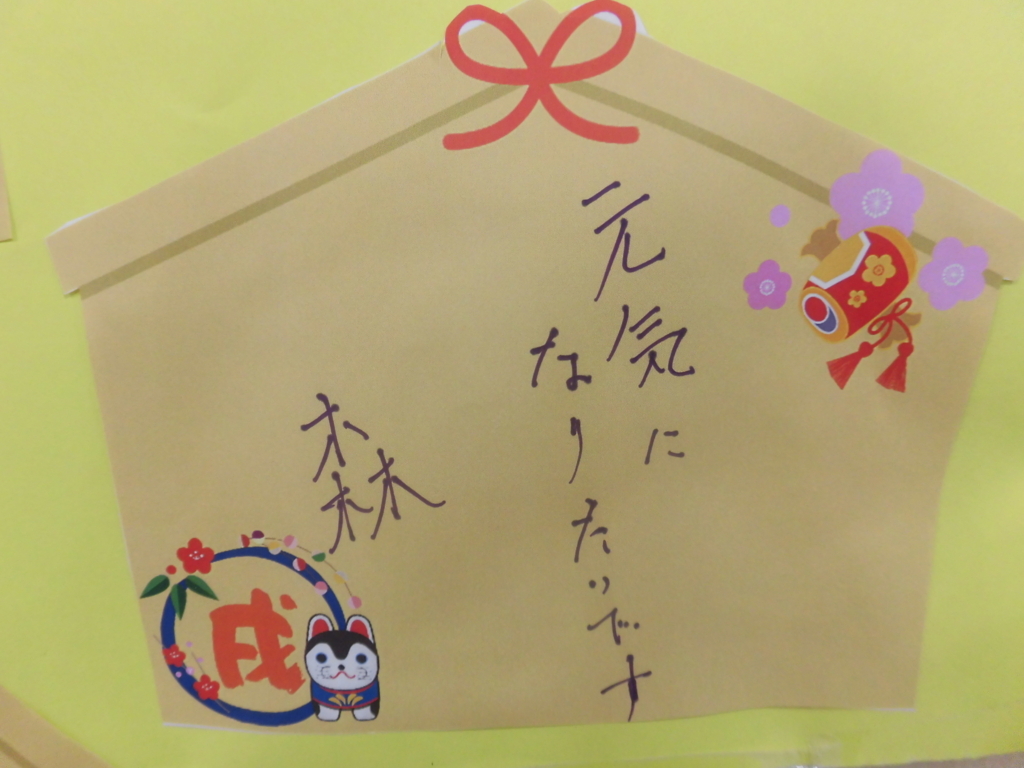 元気に
なりたいです
森
戌